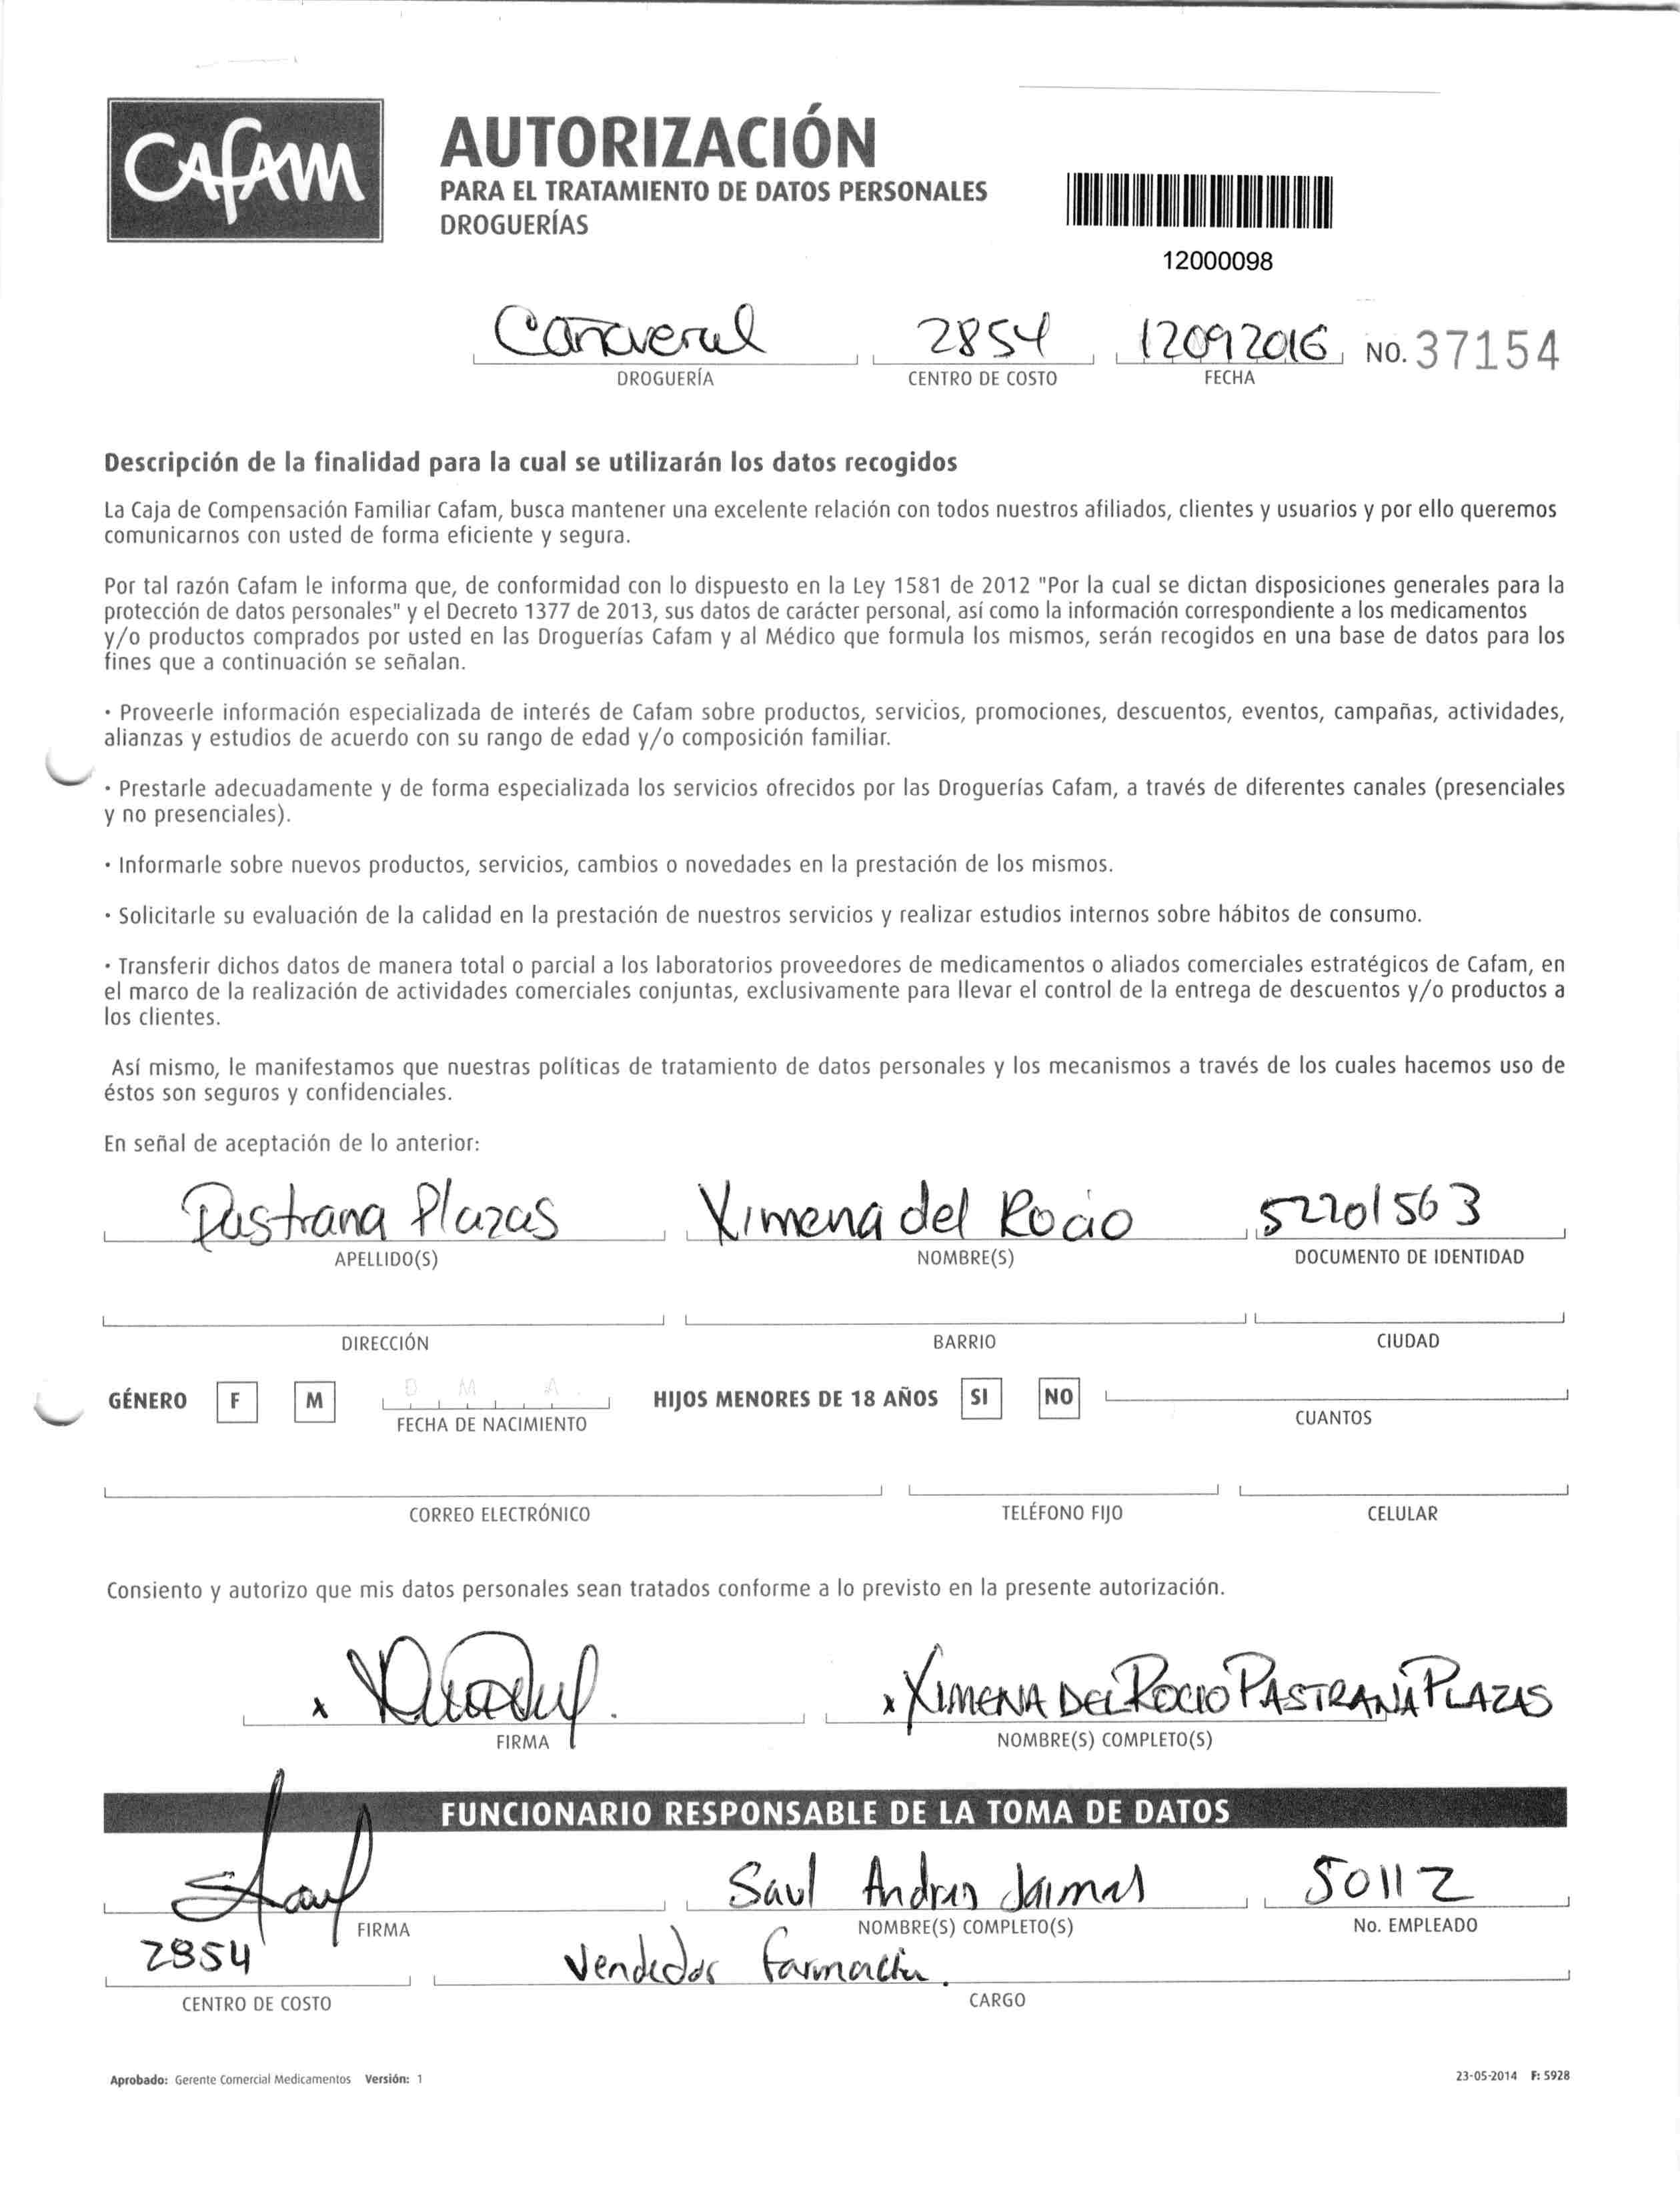 CAfAM
AUTORIZACIÓN
PARA EL TRATAMIENTO DE DATOS PERSONALES
DROGUERÍAS
12000098
Cañaveral 2854 12092016 NO. 37154
DROGUERÍA CENTRO DE COSTO FECHA
Descripción de la finalidad para la cual se utilizarán los datos recogidos
La Caja de Compensación Familiar Cafam, busca mantener una excelente relación con todos nuestros afiliados, clientes y usuarios y por ello queremos
comunicarnos con usted de forma eficiente y segura.
Por tal razón Cafam le informa que, de conformidad con lo dispuesto en la Ley 1581 de 2012 "Por la cual se dictan disposiciones generales para la
protección de datos personales" y el Decreto 1377 de 2013, sus datos de carácter personal, así como la información correspondiente a los medicamentos
y/o productos comprados por usted en las Droguerías Cafam y al Médico que formula los mismos, serán recogidos en una base de datos para los
fines que a continuación se señalan.
· Proveerle información especializada de interés de Cafam sobre productos, servicios, promociones, descuentos, eventos, campañas, actividades,
alianzas y estudios de acuerdo con su rango de edad y/o composición familiar.
· Prestarle adecuadamente y de forma especializada los servicios ofrecidos por las Droguerías Cafam, a través de diferentes canales (presenciales
y no presenciales).
· Informarle sobre nuevos productos, servicios, cambios o novedades en la prestación de los mismos.
· Solicitarle su evaluación de la calidad en la prestación de nuestros servicios y realizar estudios internos sobre hábitos de consumo.
· Transferir dichos datos de manera total o parcial a los laboratorios proveedores de medicamentos o aliados comerciales estratégicos de Cafam, en
el marco de la realización de actividades comerciales conjuntas, exclusivamente para llevar el control de la entrega de descuentos y/o productos a
los clientes.
Así mismo, le manifestamos que nuestras políticas de tratamiento de datos personales y los mecanismos a través de los cuales hacemos uso de
éstos son seguros y confidenciales.
En señal de aceptación de lo anterior:
Pastrana Plazas Ximena del Rocio 52201563
APELLIDO(S) NOMBRE(S) DOCUMENTO DE IDENTIDAD
DIRECCIÓN BARRIO CIUDAD
GÉNERO F M D M A HIJOS MENORES DE 18 AÑOS SI NO
FECHA DE NACIMIENTO CUANTOS
CORREO ELECTRÓNICO TELÉFONO FIJO CELULAR
Consiento y autorizo que mis datos personales sean tratados conforme a lo previsto en la presente autorización.
x x XIMENA DEL ROCIO PASTRANA PLAZAS
FIRMA NOMBRE(S) COMPLETO(S)
FUNCIONARIO RESPONSABLE DE LA TOMA DE DATOS
Saul Andres Jaimes 50112
FIRMA NOMBRE(S) COMPLETO(S) No. EMPLEADO
2854 Vendedor farmacia.
CENTRO DE COSTO CARGO
Aprobado: Gerente Comercial Medicamentos Versión: 1 23-05-2014 F: 5928